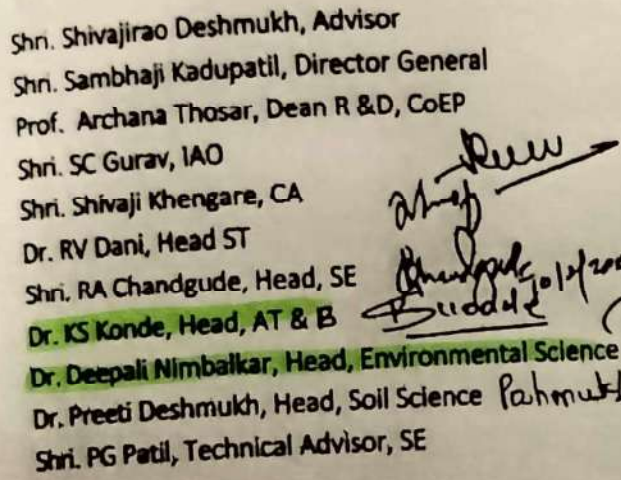 Shri. Shivajirao Deshmukh, Advisor
Shri. Sambhaji Kadupatil, Director General
Prof. Archana Thosar, Dean R &D, CoEP
Shri. SC Gurav, IAO
Shri. Shivaji Khengare, CA
Dr. RV Dani, Head ST
Shri. RA Chandgude, Head, SE
Dr. KS Konde, Head, AT & B
Dr. Deepali Nimbalkar, Head, Environmental Science
Dr. Preeti Deshmukh, Head, Soil Science
Shri. PG Patil, Technical Advisor, SE